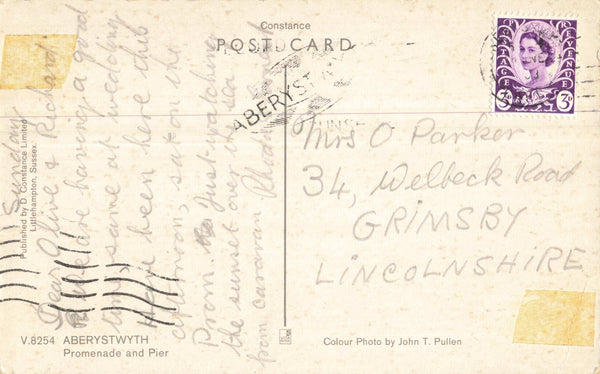 Constance
POSTCARD
POSTAGE REVENUE
3D 3D
ABERYSTWYTH
Sunday
Dear Olive & Richard
are having a good
time, same at wedding
Have been here this
afternoon, sat on the
Prom. Just watching
the sunset over the sea
from caravan
Mrs O Parker
34, Welbeck Road
GRIMSBY
LINCOLNSHIRE
Published by D. Constance Limited,
Littlehampton, Sussex.
V.8254 ABERYSTWYTH
Promenade and Pier
Colour Photo by John T. Pullen